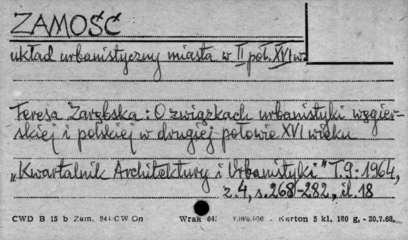 ZAMOŚĆ
układ urbanistyczny miasta w II poł. XVI w.
Teresa Zarębska: O związkach urbanistyki węgier-
skiej i polskiej w drugiej połowie XVI wieku
„Kwartalnik Architektury i Urbanistyki" T.9-1964,
z.4, s.268-282, il.18
CWD B 15 b Zam. CW On Wrak Karton 5 kl. 180 g. - 30.7.68.